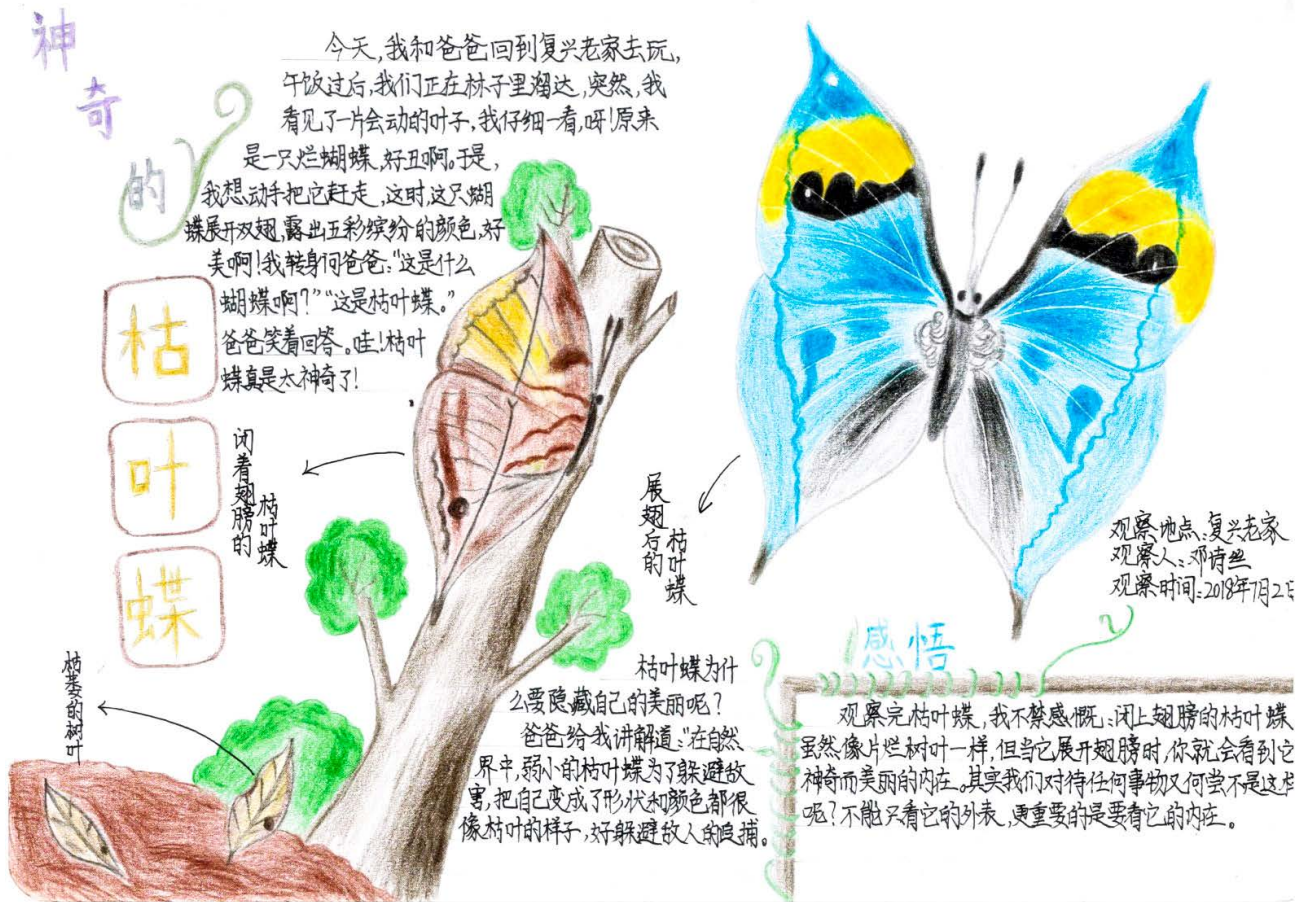 神奇的
枯叶蝶
今天,我和爸爸回到复兴老家去玩,
午饭过后,我们正在林子里溜达,突然,我
看见了一片会动的叶子,我仔细一看,呀!原来
是一只烂蝴蝶,好丑啊。于是,
我想动手把它赶走,这时,这只蝴
蝶展开双翅,露出五彩缤纷的颜色,好
美啊!我转身问爸爸:“这是什么
蝴蝶啊?”“这是枯叶蝶。”
爸爸笑着回答。哇!枯叶
蝶真是太神奇了!
闭着翅膀的
枯叶蝶
展翅后的
枯叶蝶
枯萎的树叶
观察地点:复兴老家
观察人:邓诗丝
观察时间:2018年7月2日
枯叶蝶为什
么要隐藏自己的美丽呢?
爸爸给我讲解道:“在自然
界中,弱小的枯叶蝶为了躲避敌
害,把自己变成了形状和颜色都很
像枯叶的样子,好躲避敌人的追捕。
感悟
观察完枯叶蝶,我不禁感慨:闭上翅膀的枯叶蝶
虽然像片烂树叶一样,但当它展开翅膀时,你就会看到它
神奇而美丽的内在。其实我们对待任何事物又何尝不是这样
呢?不能只看它的外表,更重要的是要看它的内在。